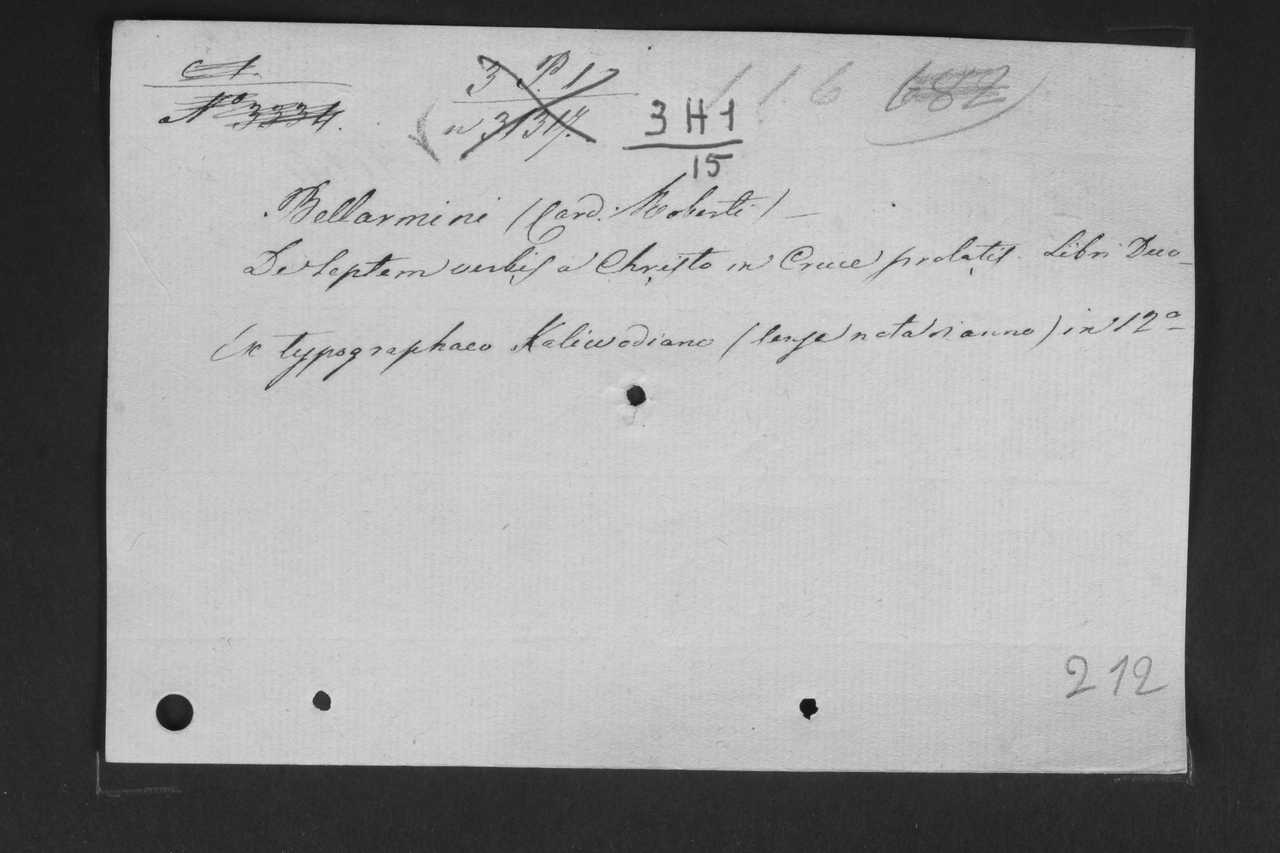 A.
No 3334.
3 P. 1
n 31317.
3 H 1
15
116
682
Bellarmini (Card. Roberti) –
De Septem verbis a Christo in Cruce prolatis. Libri Duo –
Ex typographaeo Kaliwodiano ( nota anno) in 12o
212